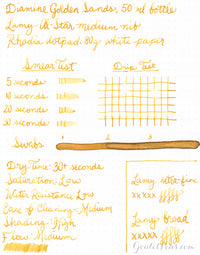 Diamine Golden Sands, 50 ml bottle
Lamy Al-Star medium nib
Rhodia dotpad 80g white paper
Smear Test
Drip Test
5 seconds
10 seconds
20 seconds
30 seconds
Swabs
1
2
3
Dry Time: 30+ seconds
Saturation: Low
Water Resistance: Low
Ease of Cleaning: Medium
Shading: High
Flow: Medium
Lamy extra-fine
xxxxx
Lamy broad
xxxxx
GouletPens.com